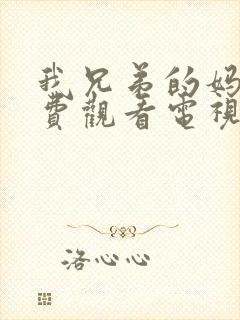 我兄弟的妈
費觀看電視
洛心心